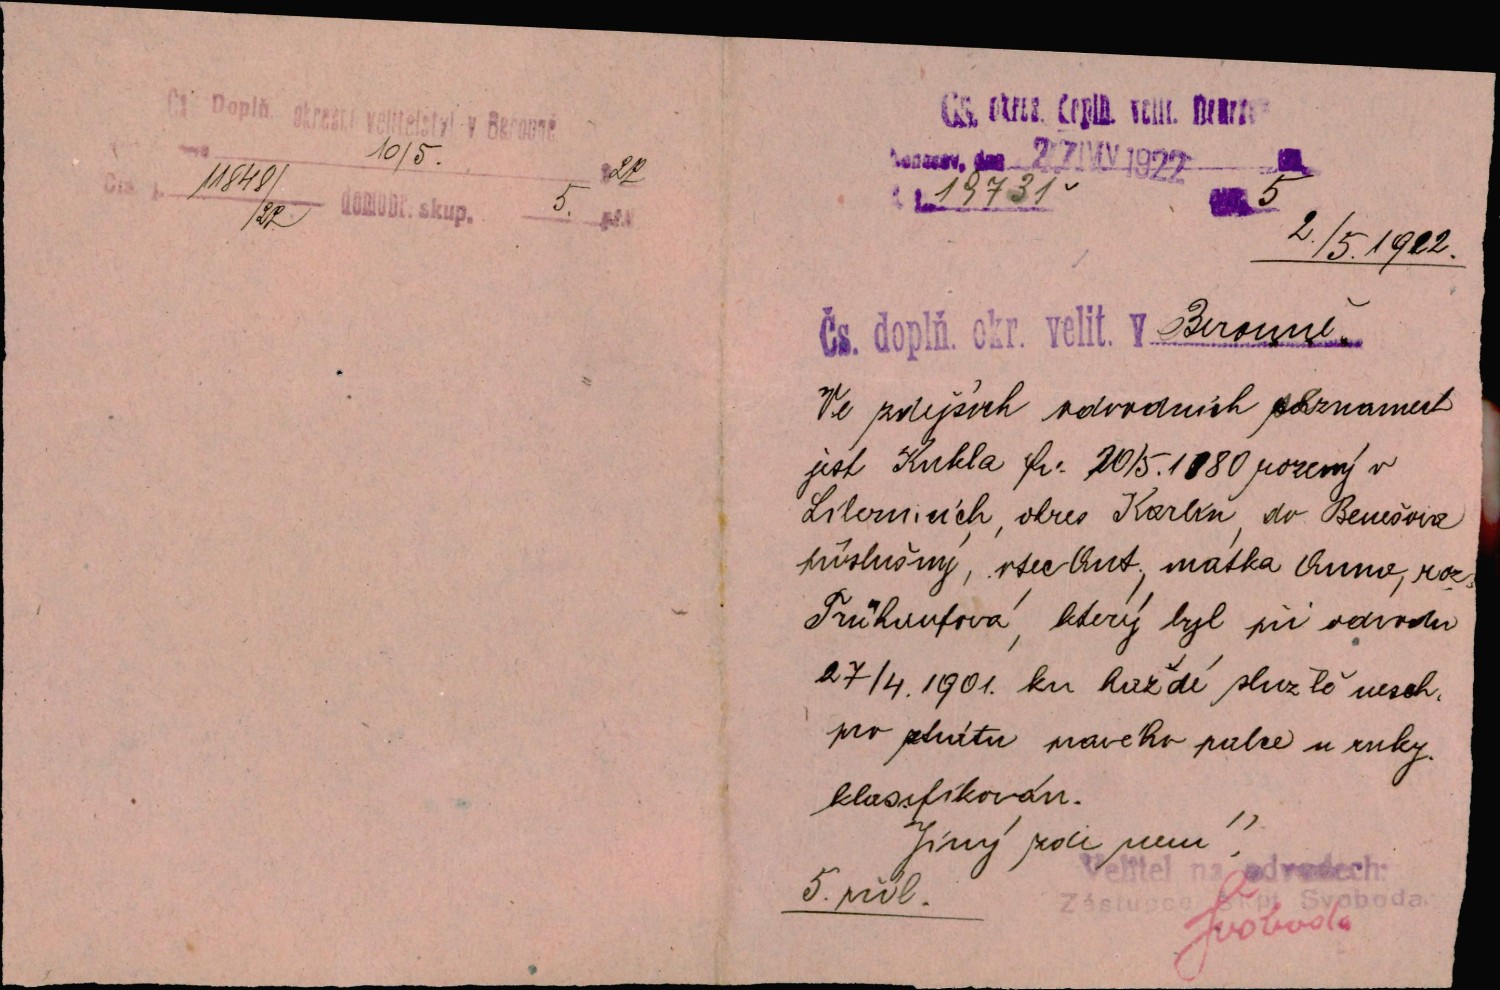 Čs. Doplň. okresní velitelství v Berouně
10/5. 22
Čís. j. 11848/22 domobr. skup. 5.
Čs. okres. doplň. velit. Benešov
Benešov, dne 27 IV 1922
19731 5
2./5. 1922.
Čs. doplň. okr. velit. v Berouně.
Ve zdejších odvodních seznamech
jest Kukla Fr. 20/5. 1880 rozený v
okres Karlín, do Benešova
příslušný, otec Ant., matka Anna, roz.
který byl při odvodu
27/4. 1901. ku každé službě nesch.
pro ztrátu pravého palce u ruky
klasifikován.
Jiný zde není!
5. příl.
Velitel na odvodech:
Zástupce Škpt. Svoboda.
Svoboda